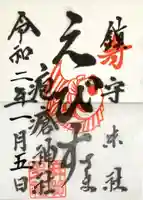 鎮守末社
えびす
さま
疱瘡神社
令和二年一月五日